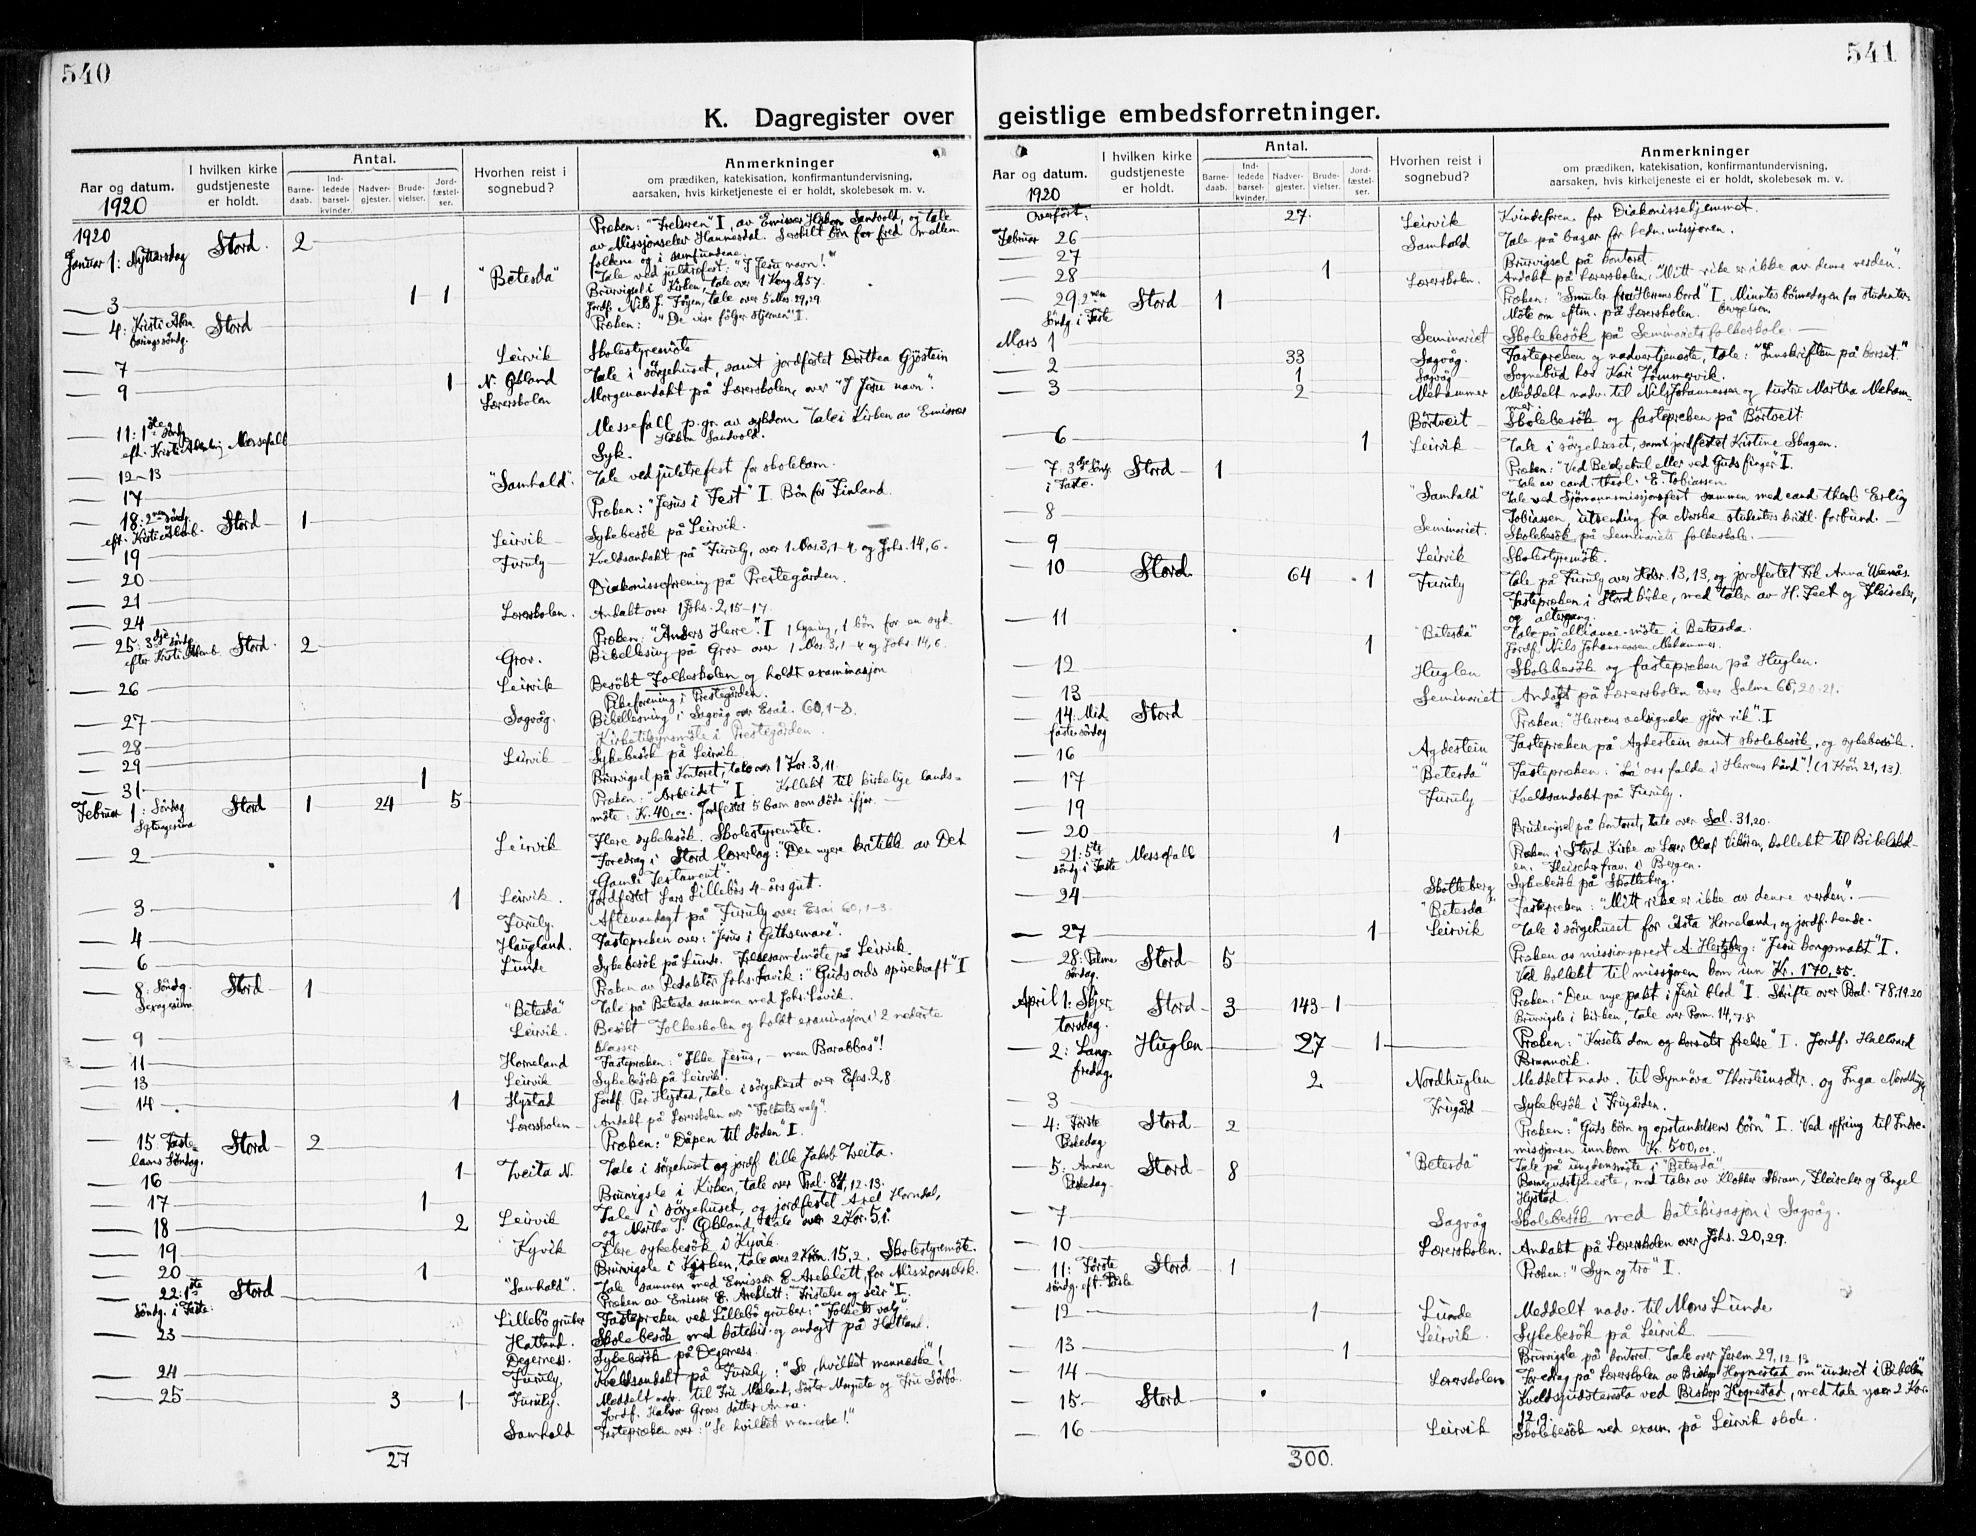 540
K. Dagregister over
Aar og datum.
1920
I hvilken kirke gudstjeneste er holdt.
Antal.
Barne-daab.
Ind-ledede barsel-kvinder.
Nadver-gjester.
Brude-vielser.
Jord-fæstel-ser.
Hvorhen reist i sognebud?
Anmerkninger
om prædiken, katekisation, konfirmantundervisning,
aarsaken, hvis kirketjeneste ei er holdt, skolebesøk m. v.
1920
Januar 1: Nyttårsdag Stord. 2 Præken: "Frelseren" I, av Emissær Håkon Sandvold, og tale
av Missjonselev Hannesdal. Særskilt bön for fred mellem
folkene og i samfundene.
"Betesda" Tale ved juletrefest: "I Jesu navn!"
3 1 1 Bruvigsel i Kirken, tale over 1 Kong. 8,57.
Jordf. Nils J. Tögen, tale over 5 Mos. 29,29
4: Kristi Åben-baringssöndg. Stord Præken: "De vise følger stjernen" I.
7 Leirvik Skolestyremöte
9 1 N. Øbland Tale i sörgehuset, samt jordfestet Dorthea Gjöstein
Lærerskolen Morgenandakt på Lærerskolen, over "I Jesu navn".
11: 1ste söndg. eft. Kristi Åbenb. Messefall Messefall p. gr. av sykdom. Tale i Kirken av Emissær
Håkon Sandvold.
12-13 Syk.
17 "Samhald" Tale ved juletrefest for skolebarn.
18: 2nen söndg. eft. Kristi Åbenb. Stord 1 Præken: "Jesus i Fest" I. Bön for Finland.
19 Leirvik Sykebesök på Leirvik.
20 Furuly Kveldsandakt på Furuly, over 1 Mos. 3,1-4 og Johs. 14,6.
21 Diakonisseforening på Prestegården.
24 Lærerskolen. Andakt over 1 Johs. 2,15-17.
25: 3dje söndg. efter Kristi Åbenb. Stord. 2 Præken: "Anders Herre" I 1 lysning, 1 bön for en syk
Grov. Bibellesing på Grov over 1 Mos. 3,1-4 og Johs. 14,6.
26 Leirvik Besökt Folkeskolen og holdt examinasjon
Pikeforening i Prestegården.
27 Sagvåg. Bibellesning i Sagvåg over Esai. 60,1-3.
28 Kirketilsynsmöte i Prestegården.
29 Leirvik Sykebesök på Leirvik
31 1 Bruvigsel på Kontoret, tale over 1 Kor. 3,11.
Februar 1: Söndag Septuagesima Stord 1 24 5 Præken: "Arbeidet" I Kollekt til kirkelige lands-
möte: Kr. 40,00. Jordfestet 5 barn som döde ifjor.
2 Leirvik Flere sykebesök. Skolestyremöte.
Foredrag i Stord lærerlag: "Den nyere kritikk av Det
Gamle Testament".
3 1 Leirvik. Jordfestet Lars Lillebös 4-års gutt.
Furuly. Aftenandagt på Furuly over Esai 60,1-3.
4 Haugland. Fastepræken over: "Jesus i Gethsemane".
6 Lunde Sykebesök på Lunde. Frelsesarmemöte på Leirvik.
8: Söndg. Sexagesima Stord 1 Præken av Redaktör Johs. Lavik: "Guds ords spirekraft" I
"Betesda" Tale på Betesda sammen med Johs. Lavik.
9 Leirvik. Besökt Folkeskolen og holdt examinasjon i 2 nederste
klasser
11 Horneland Fastepræken: "Ikke Jesus, — men Barabbas"!
13 Leirvik Sykebesök på Leirvik.
14 1 Hystad Jordf. Per Hystad, tale i sörgehuset over Efes. 2,8
Lærerskolen Andakt på Lærerskolen over "Folkets valg".
15 Faste-lavns Söndag. Stord 2 Præken: "Dåpen til döden" I.
16 1 Tveita N. Tale i sörgehuset og jordf. lille Jakob Tveita.
17 1 Bruvigsle i Kirken, tale over Psal. 84, 12-13.
18 2 Leirvik Tale i sörgehuset, og jordfestet Axel Horndal,
og Martha T. Øbland, tale over 2 Kor. 5,1.
19 Kyvik Flere sykebesök i Kyvik.
20 1 Bruvigsle i Kirken, tale over 2 Krön. 15,2. Skolestyremöte.
"Samhald". Tale sammen med Emissær E. Areklett, for Missionsselsk.
22: 1ste Söndg. i Faste: Stord Præken av Emissær E. Areklett: "Fristelse og seir" I.
Lillebö gruber Fastepræken ved Lillebö gruber: "Folkets valg".
23 Hatland. Skolebesök med katekis. og andagt på Hatland.
Degerness. Sykebesök på Degerness.
24 Furuly, Kveldsandakt på Furuly: "Se, hvilket menneske"!
25 3 1 Furuly. Meddelt nadv. til Fru Meland, Söster Margrete og Fru Sörbö.
Jordf. Halvor Grovs datter Anna.
Samhald Fastepræken over: "Se hvilket menneske!"
27
541
geistlige embedsforretninger.
Aar og datum.
1920
I hvilken kirke gudstjeneste er holdt.
Antal.
Barne-daab.
Ind-ledede barsel-kvinder.
Nadver-gjester.
Brude-vielser.
Jord-fæstel-ser.
Hvorhen reist i sognebud?
Anmerkninger
om prædiken, katekisation, konfirmantundervisning,
aarsaken, hvis kirketjeneste ei er holdt, skolebesøk m. v.
Overfört: 27. Leirvik Kvindeforen. for Diakonissehjemmet.
Februar 26 Samhald Tale på basar for hedn. missjonen.
27 Bruvigsel på kontoret.
28 1 Lærerskolen. Andakt på Lærerskolen: "Mitt rike er ikke av denne verden".
29: 2nen Söndg i Faste Stord 1 Præken: "Smuler fra Herrens bord" I. Minntes bönnedagen for studenter.
Möte om eftm. på Lærerskolen.
Mars 1 Seminariet Skolebesök på Seminariets folkeskole.
2 33 Sagvåg. Fastepræken og nadvertjeneste, tale: "Innskriften på korset."
1 Sagvåg Sognebud hos Kari Tömmervik.
3 2 Mehammer Meddelt nadv. til Nils Johannessen og hustru Martha Meham-
mer.
Börtveit Skolebesök og fastepræken på Börtveit.
6 1 Leirvik Tale i sörgehuset, samt jordfestet Kristine Skagen.
7: 3dje Söndg. i Faste. Stord 1 Præken: "Ved Be'elsebul eller ved Guds finger" I.
Tale av cand. theol. E. Tobiassen
"Samhald" Tale ved Sjömannsmissjonsfest sammen med cand. theol. Erling
8 Tobiassen utsending fra Norske studenters kristl. forbund.
Seminariet. Skolebesök på Seminariets folkeskole.
9 Leirvik Skolestyremöte.
10 Stord. 64 1 Furuly Tale på Furuly over Hebr. 13,13, og jordfestet Frk. Anna Wernås.
Fastepræken i Stord kirke, med taler av H. Feet og Fleischer,
og altergang.
11 "Betesda" Tale på alliance-möte i Betesda.
1 Jordf. Nils Johannessen Mehammer.
12 Huglen Skolebesök og fastepræken på Huglen.
13 Seminariet Andagt på Lærerskolen over Salme 68,20-21.
14: Mid-fastesöndag Stord Præken: "Herrens velsignelse gjör rik". I
16 Agdestein Fastepræken på Agdestein samt skolebesök, og sykebesök.
17 "Betesda" Fastepræken: "La oss falde i Herrens hånd"! (1 Krön 21,13).
19 Furuly Kveldsandakt på Furuly.
20 1 Brudevigsel på kontoret, tale over Sal. 31,20.
21: 5te söndg i Faste Messefall Præken i Stord Kirke av Lærer Olaf Vikören, kollekt til Bibelsk-
en. Fleischer frav. i Bergen.
24 Skotteberg Sykebesök på Skotteberg.
"Betesda" Fastepræken: "Mitt rike er ikke av denne verden".
27 1 Leirvik Tale i sörgehuset for Asta Horneland, og jordf. hende.
28: Palme söndag. Stord 5 Præken av missionsprest A. Hertzberg: "Jesu kongsmakt" I.
Ved kollekt til missjonen kom inn Kr. 170,55.
April 1: Skjær-torsdag. Stord 3 143 1 Præken: "Den nye pakt i Jesu blod" I. Skrifte over Psal. 78,19.20
Bruvigsle i kirken, tale over Rom. 14,7-8.
2: Lang-fredag. Huglen 27 1 Præken: "Korsets dom og korsets frelse" I. Jordf. Hallvard
Brannvik.
2 Nordhuglen Meddelt nadv. til Synnöva Thorsteinsdtr. og Inga Nordhugl.
3 Frugård Sykebesök i Frugården.
4: Förste Påskedag. Stord 2 Præken: "Guds börn og opstandelsens börn" I. Ved offring til Indre-
missjonen innkom Kr. 500,00.
5: Annen Påskedag. Stord 8 "Betesda" Tale på ungdomsmöte i "Betesda".
Barnegudstjeneste, med taler av Klokker Skram, Fleischer og Engel
Hystad.
7 Sagvåg Skolebesök med katekisasjon i Sagvåg.
10 Lærerskolen. Andakt på Lærerskolen over Johs. 20,29.
11: Förste söndg. eft. Påske Stord 1 Præken: "Syn og tro" I.
12 1 Lunde Meddelt nadv. til Mons Lunde
Leirvik. Sykebesök på Leirvik
13 1 Bruvigsle på kontoret. Tale over Jerem 29,12-13
14 Lærerskolen Foredag på Lærerskolen av Biskop Hognestad om "underet i Bibelen"
15 Stord Kveldsgudstenesta ved Biskop Hognestad, med tale yver 2 Kor.
12,9.
16 Leirvik Skolebesök ved exam. på Leirvik skole.
300.